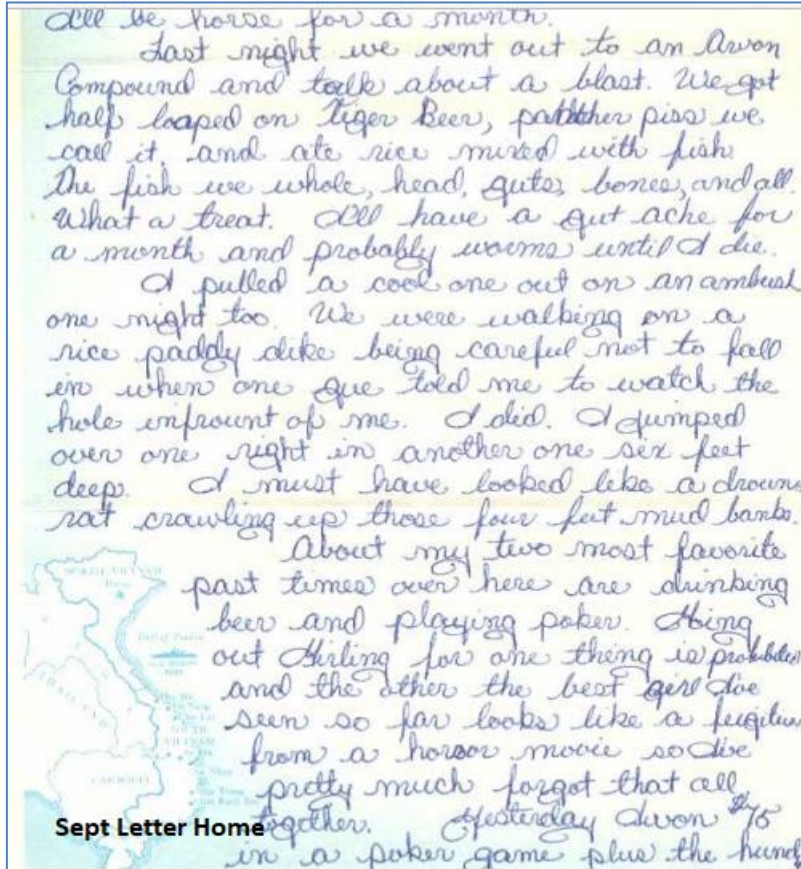 I'll be horse for a month.
Last night we went out to an Arvon
Compound and talk about a blast. We got
half loaped on Tiger Beer, patther piss we
call it, and ate rice mixed with fish.
The fish we whole, head, guts, bones, and all.
What a treat. I'll have a gut ache for
a month and probably worms until I die.
I pulled a cool one out on an ambush
one night too. We were walking on a
rice paddy dike being careful not to fall
in when one gue told me to watch the
hole infrount of me. I did. I jumped
over one right in another one six feet
deep. I must have looked like a drown
rat crawling up those four feet mud banks.
About my two most favorite
past times over here are drinking
beer and playing poker.
out Girling for one thing is prohibited
and the other the best girl I've
seen so far looks like a fugitive
from a horror movie so I've
pretty much forgot that all
together. Yesterday I won $75
in a poker game plus the hund
NORTH VIETNAM
Gulf of Tonkin
THAILAND
SOUTH
VIETNAM
CAMBODIA
Sept Letter Home